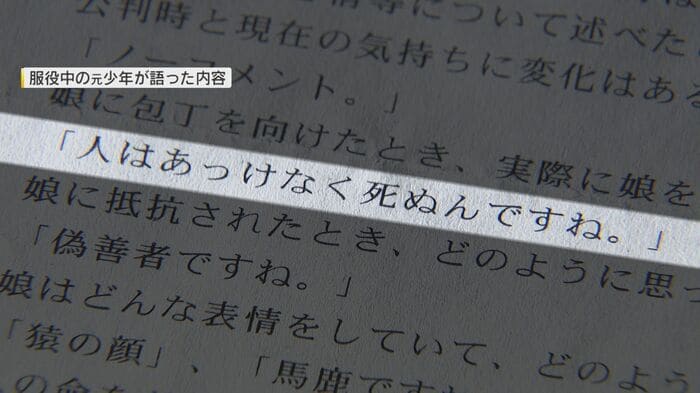 情等について述べた
公判時と現在の気持ちに変化はある
「ノーコメント。」
服役中の元少年が語った内容
娘に包丁を向けたとき、実際に娘を
「人はあっけなく死ぬんですね。」
娘に抵抗されたとき、どのように思っ
「偽善者ですね。」
娘はどんな表情をしていて、どのよう
「猿の顔」、「馬鹿ですね
の命を